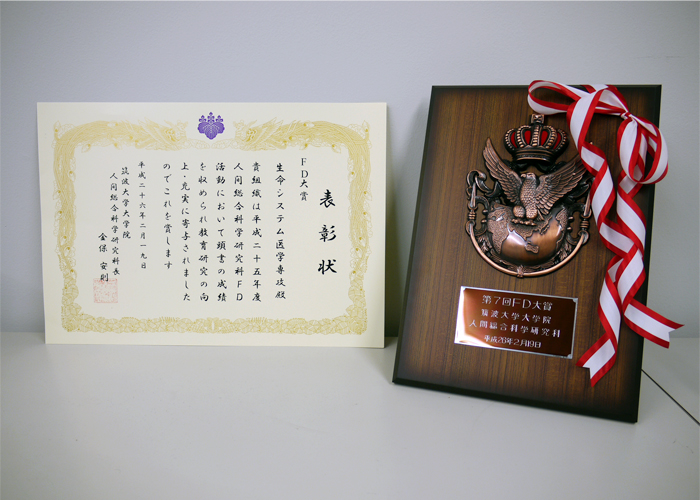 表彰状
FD大賞
生命システム医学専攻殿
貴組織は平成二十五年度
人間総合科学研究科FD
活動において頭書の成績
を収められ教育研究の向
上・充実に寄与されました
のでこれを賞します
平成二十六年二月一九日
筑波大学大学院
人間総合科学研究科長
金保安則
第7回FD大賞
筑波大学大学院
人間総合科学研究科
平成26年2月19日